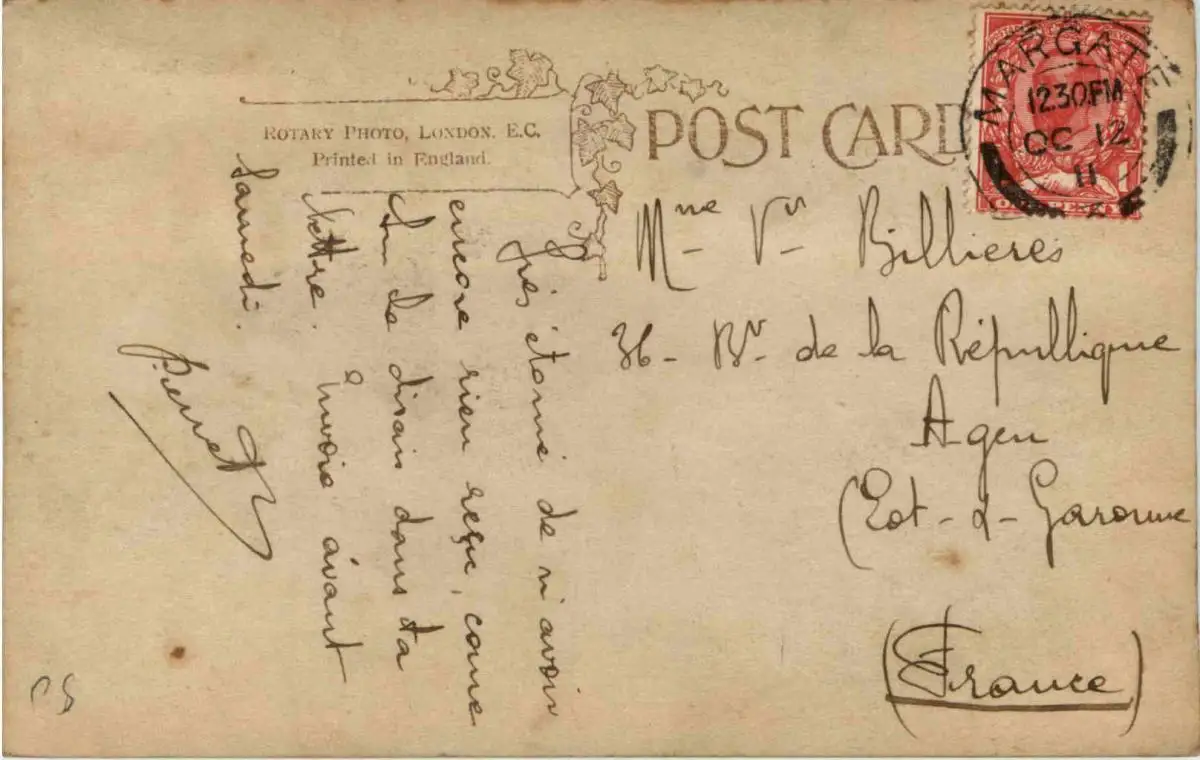 ROTARY PHOTO, LONDON. E.C.
Printed in England.
POST CARD
MARGATE
12.30 PM
OC 12
11
Mme Vve Billieres
36 - Bd de la République
Agen
(Lot-&-Garonne
(France)
Très étonné de n'avoir
encore rien reçu, come
tu le disais dans ta
lettre. Envoie avant
Samedi.
Pierret